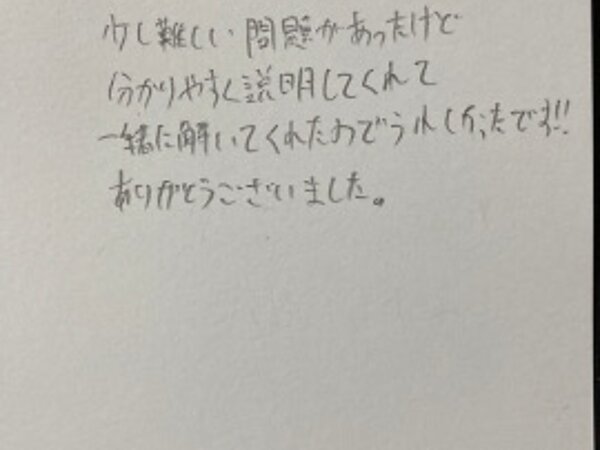 少し難しい問題があったけど
分かりやすく説明してくれて
一緒に解いてくれたのでうれしかったです!!
ありがとうございました。